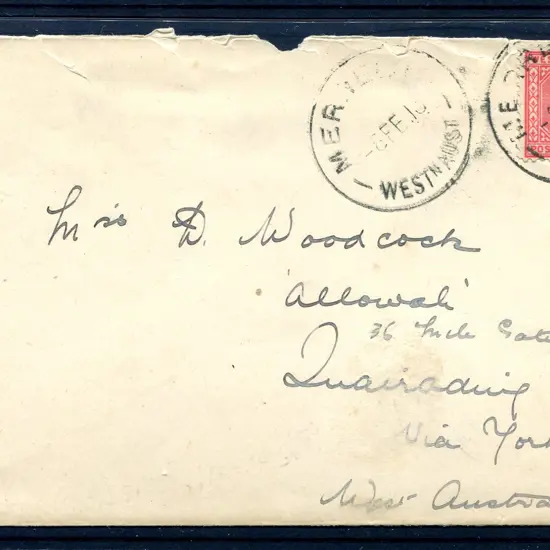 MER
-6FE19
WESTN AUST
ME
POS
Mrs D. Woodcock
'Allowah'
36 Mile Gate
Quairading
Via York
West Austra